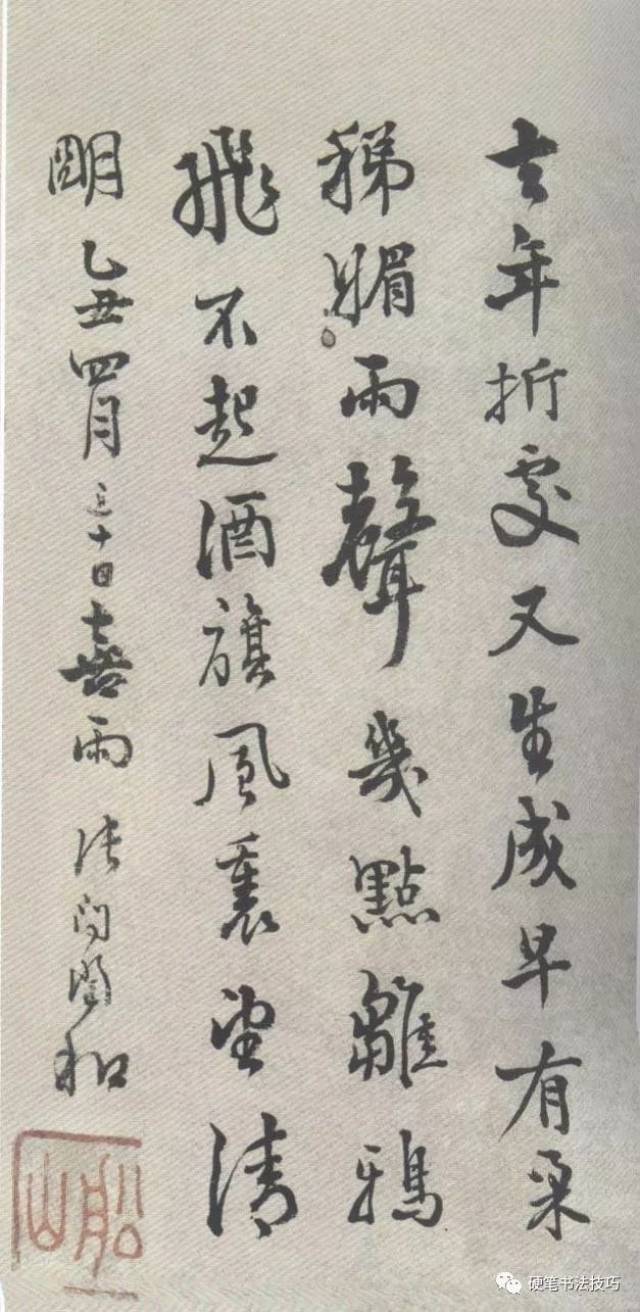 去年折處又生成早有柔
稊媚雨聲幾點雛鴉
飛不起酒旗風裏望清
明 乙丑四月三十日喜雨 張問陶和
船山
硬笔书法技巧